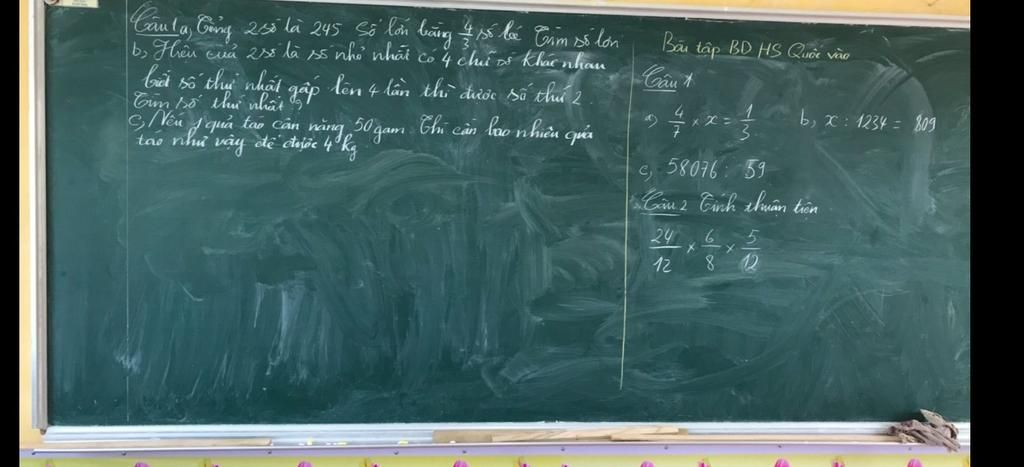 Câu 1 a, Tổng 2 số là 245 Số lớn bằng 4/3 số bé Tìm số lớn
b, Hiệu của 2 số là số nhỏ nhất có 4 chữ số khác nhau
biết số thứ nhất gấp lên 4 lần thì được số thứ 2.
Tìm số thứ nhất ?
c, Nếu 1 quả táo cân nặng 50 gam. Thì cần bao nhiêu quả
táo như vậy để được 4 kg
Bài tập BD HS Quốc vào
Câu 1
a) 4/7 × x = 1/3 b, x : 1234 = 809
c, 58076 : 59
Câu 2 Tính thuận tiện
24/12 × 6/8 × 5/12